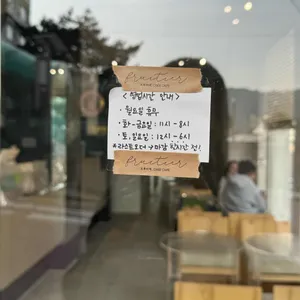 fractier
< 영업시간 안내 >
· 월요일 휴무
· 화-금요일 : 11시 - 8시
· 토, 일요일 : 12시 - 6시
*라스트오더 → 마감 한시간 전!
fractier